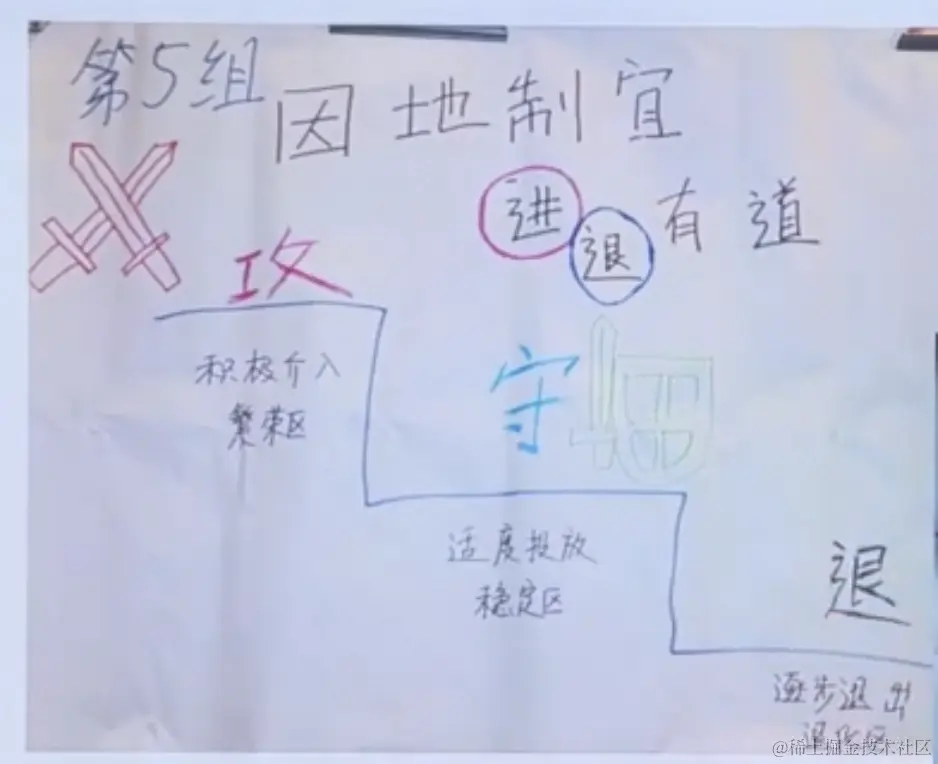 第5组
因地制宜
进退有道
攻
积极介入
繁荣区
守
适度投放
稳定区
退
逐步退出
退化区
@稀土掘金技术社区